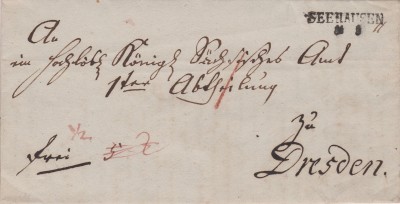 SEEHAUSEN
An
ein Hochlöbl. Königl. Sächsisches Amt
1ter Abtheilung
zu
Dresden.
frei